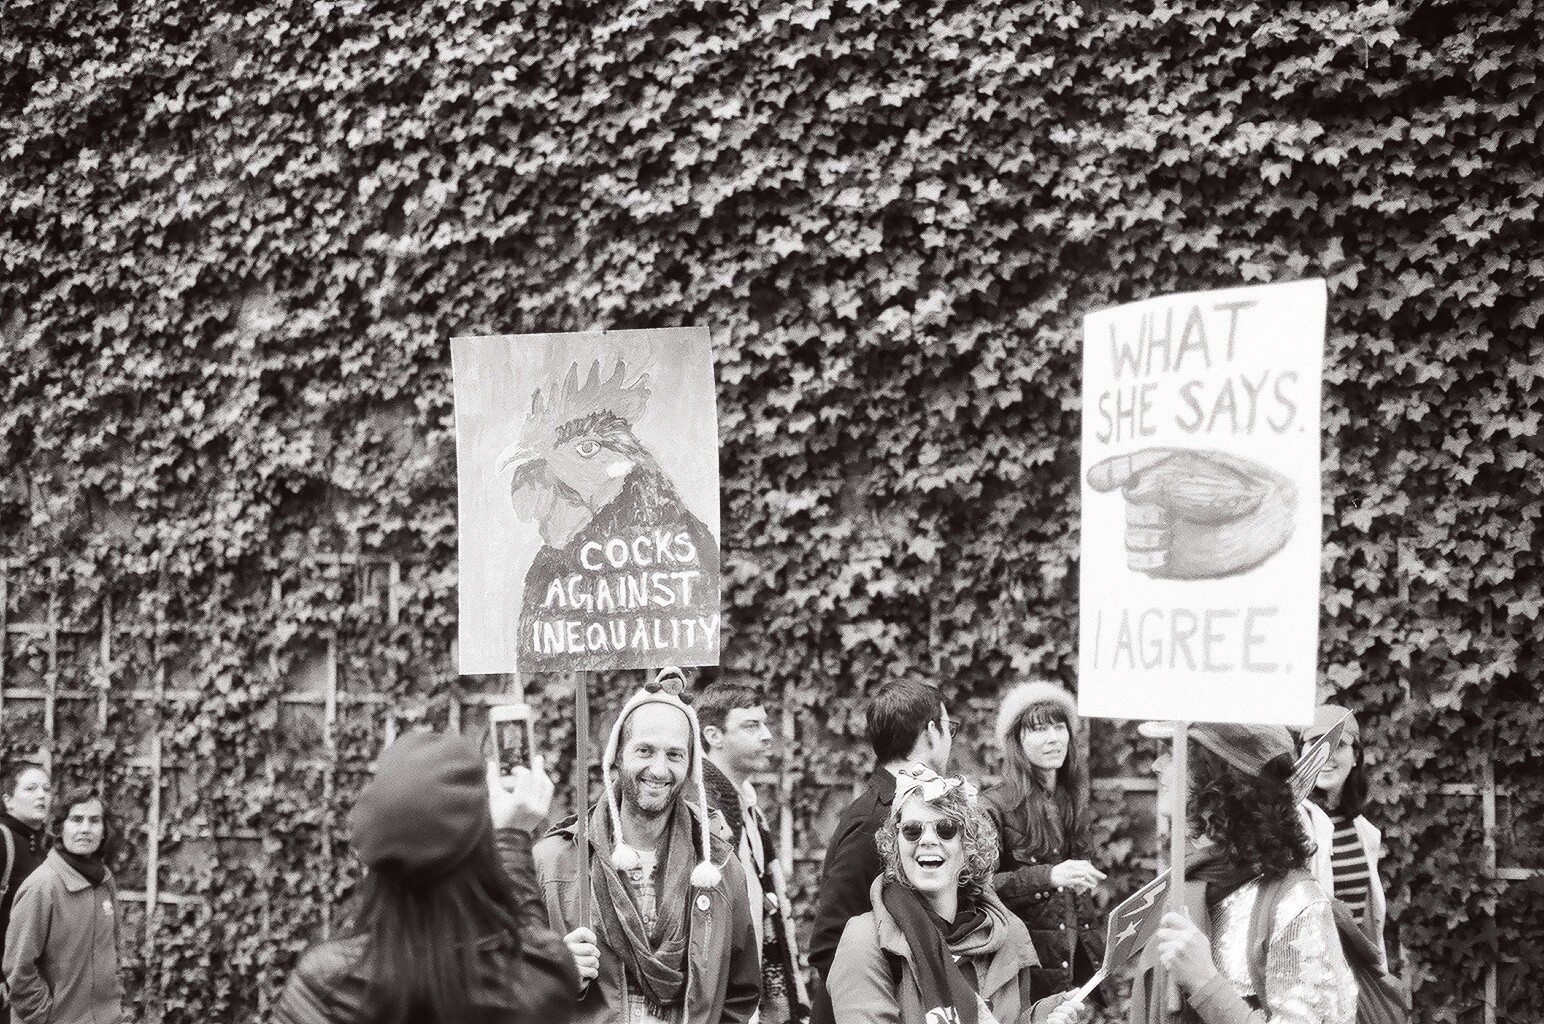 COCKS
AGAINST
INEQUALITY
WHAT
SHE SAYS.
I AGREE.